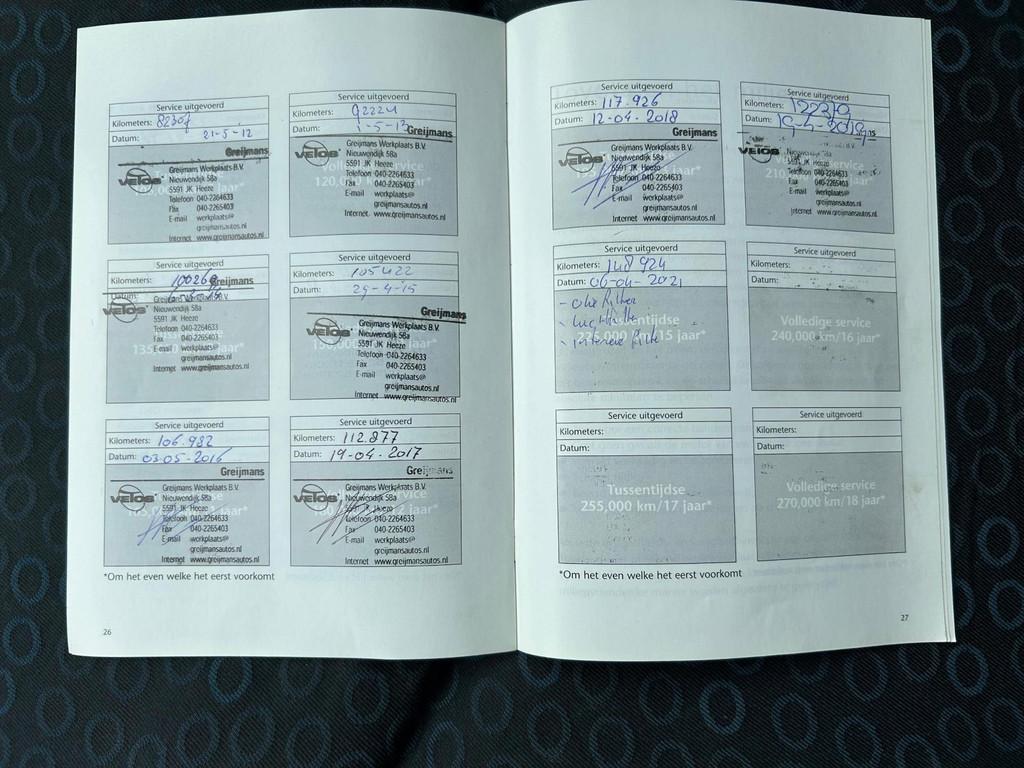 Service uitgevoerd
Kilometers: 82307
Datum: 21-5-12
Greijmans
VELOS Greijmans Werkplaats B.V.
Nieuwendijk 58a
5591 JK Heeze
Telefoon 040-2264633
Fax 040-2265403
E-mail werkplaats@
greijmansautos.nl
Internet www.greijmansautos.nl
Service uitgevoerd
Kilometers: 92224
Datum: 1-5-13
Greijmans
VELOS Greijmans Werkplaats B.V.
Nieuwendijk 58a
5591 JK Heeze
Telefoon 040-2264633
Fax 040-2265403
E-mail werkplaats@
greijmansautos.nl
Internet www.greijmansautos.nl
Service uitgevoerd
Kilometers: 100260
Datum:
Greijmans
VELOS Greijmans Werkplaats B.V.
Nieuwendijk 58a
5591 JK Heeze
Telefoon 040-2264633
Fax 040-2265403
E-mail werkplaats@
greijmansautos.nl
Internet www.greijmansautos.nl
Service uitgevoerd
Kilometers: 105422
Datum: 29-4-15
Greijmans
VELOS Greijmans Werkplaats B.V.
Nieuwendijk 58a
5591 JK Heeze
Telefoon 040-2264633
Fax 040-2265403
E-mail werkplaats@
greijmansautos.nl
Internet www.greijmansautos.nl
Service uitgevoerd
Kilometers: 106.982
Datum: 03-05-2016
Greijmans
VELOS Greijmans Werkplaats B.V.
Nieuwendijk 58a
5591 JK Heeze
Telefoon 040-2264633
Fax 040-2265403
E-mail werkplaats@
greijmansautos.nl
Internet www.greijmansautos.nl
Service uitgevoerd
Kilometers: 112.877
Datum: 19-04-2017
Greijmans
VELOS Greijmans Werkplaats B.V.
Nieuwendijk 58a
5591 JK Heeze
Telefoon 040-2264633
Fax 040-2265403
E-mail werkplaats@
greijmansautos.nl
Internet www.greijmansautos.nl
*Om het even welke het eerst voorkomt
26
Service uitgevoerd
Kilometers: 117.926
Datum: 12-04-2018
Greijmans
VELOS Greijmans Werkplaats B.V.
Nieuwendijk 58a
5591 JK Heeze
Telefoon 040-2264633
Fax 040-2265403
E-mail werkplaats@
greijmansautos.nl
Internet www.greijmansautos.nl
Service uitgevoerd
Kilometers: 122370
Datum: 19-4-2019
VELOS
Nieuwendijk 58a
5591 JK Heeze
Telefoon 040-2264633
Fax 040-2265403
E-mail werkplaats@
greijmansautos.nl
Internet www.greijmansautos.nl
Service uitgevoerd
Kilometers: 148 924
Datum: 06-04-2021
- olie filter
- luchtfilter
- interieur filter
Tussentijdse
225,000 km/15 jaar*
Service uitgevoerd
Kilometers:
Datum:
Volledige service
240,000 km/16 jaar*
Service uitgevoerd
Kilometers:
Datum:
Tussentijdse
255,000 km/17 jaar*
Service uitgevoerd
Kilometers:
Datum:
Volledige service
270,000 km/18 jaar*
*Om het even welke het eerst voorkomt
27